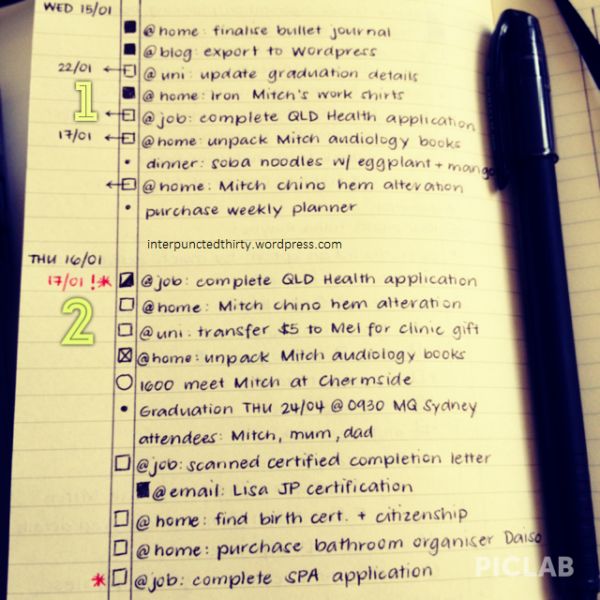 WED 15/01
@home: finalise bullet journal
@blog: export to Wordpress
22/01 @uni: update graduation details
1
@home: Iron Mitch's work shirts
@job: complete QLD Health application
17/01 @home: unpack Mitch audiology books
• dinner: soba noodles w/ eggplant + mango
@home: Mitch chino hem alteration
• purchase weekly planner
interpunctedthirty.wordpress.com
THU 16/01
17/01 !* @job: complete QLD Health application
2
@home: Mitch chino hem alteration
@uni: transfer $5 to Mel for clinic gift
@home: unpack Mitch audiology books
1600 meet Mitch at Chermside
• Graduation THU 24/04 @ 0930 MQ Sydney
attendees: Mitch, mum, dad
@job: scanned certified completion letter
@email: Lisa JP certification
@home: find birth cert. + citizenship
@home: purchase bathroom organiser Daiso
* @job: complete SPA application
PICLAB